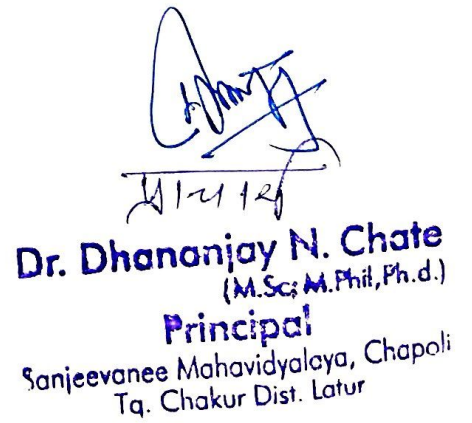 प्राचार्य
Dr. Dhananjay N. Chate
(M.Sc; M.Phil, Ph.d.)
Principal
Sanjeevanee Mahavidyalaya, Chapoli
Tq. Chakur Dist. Latur